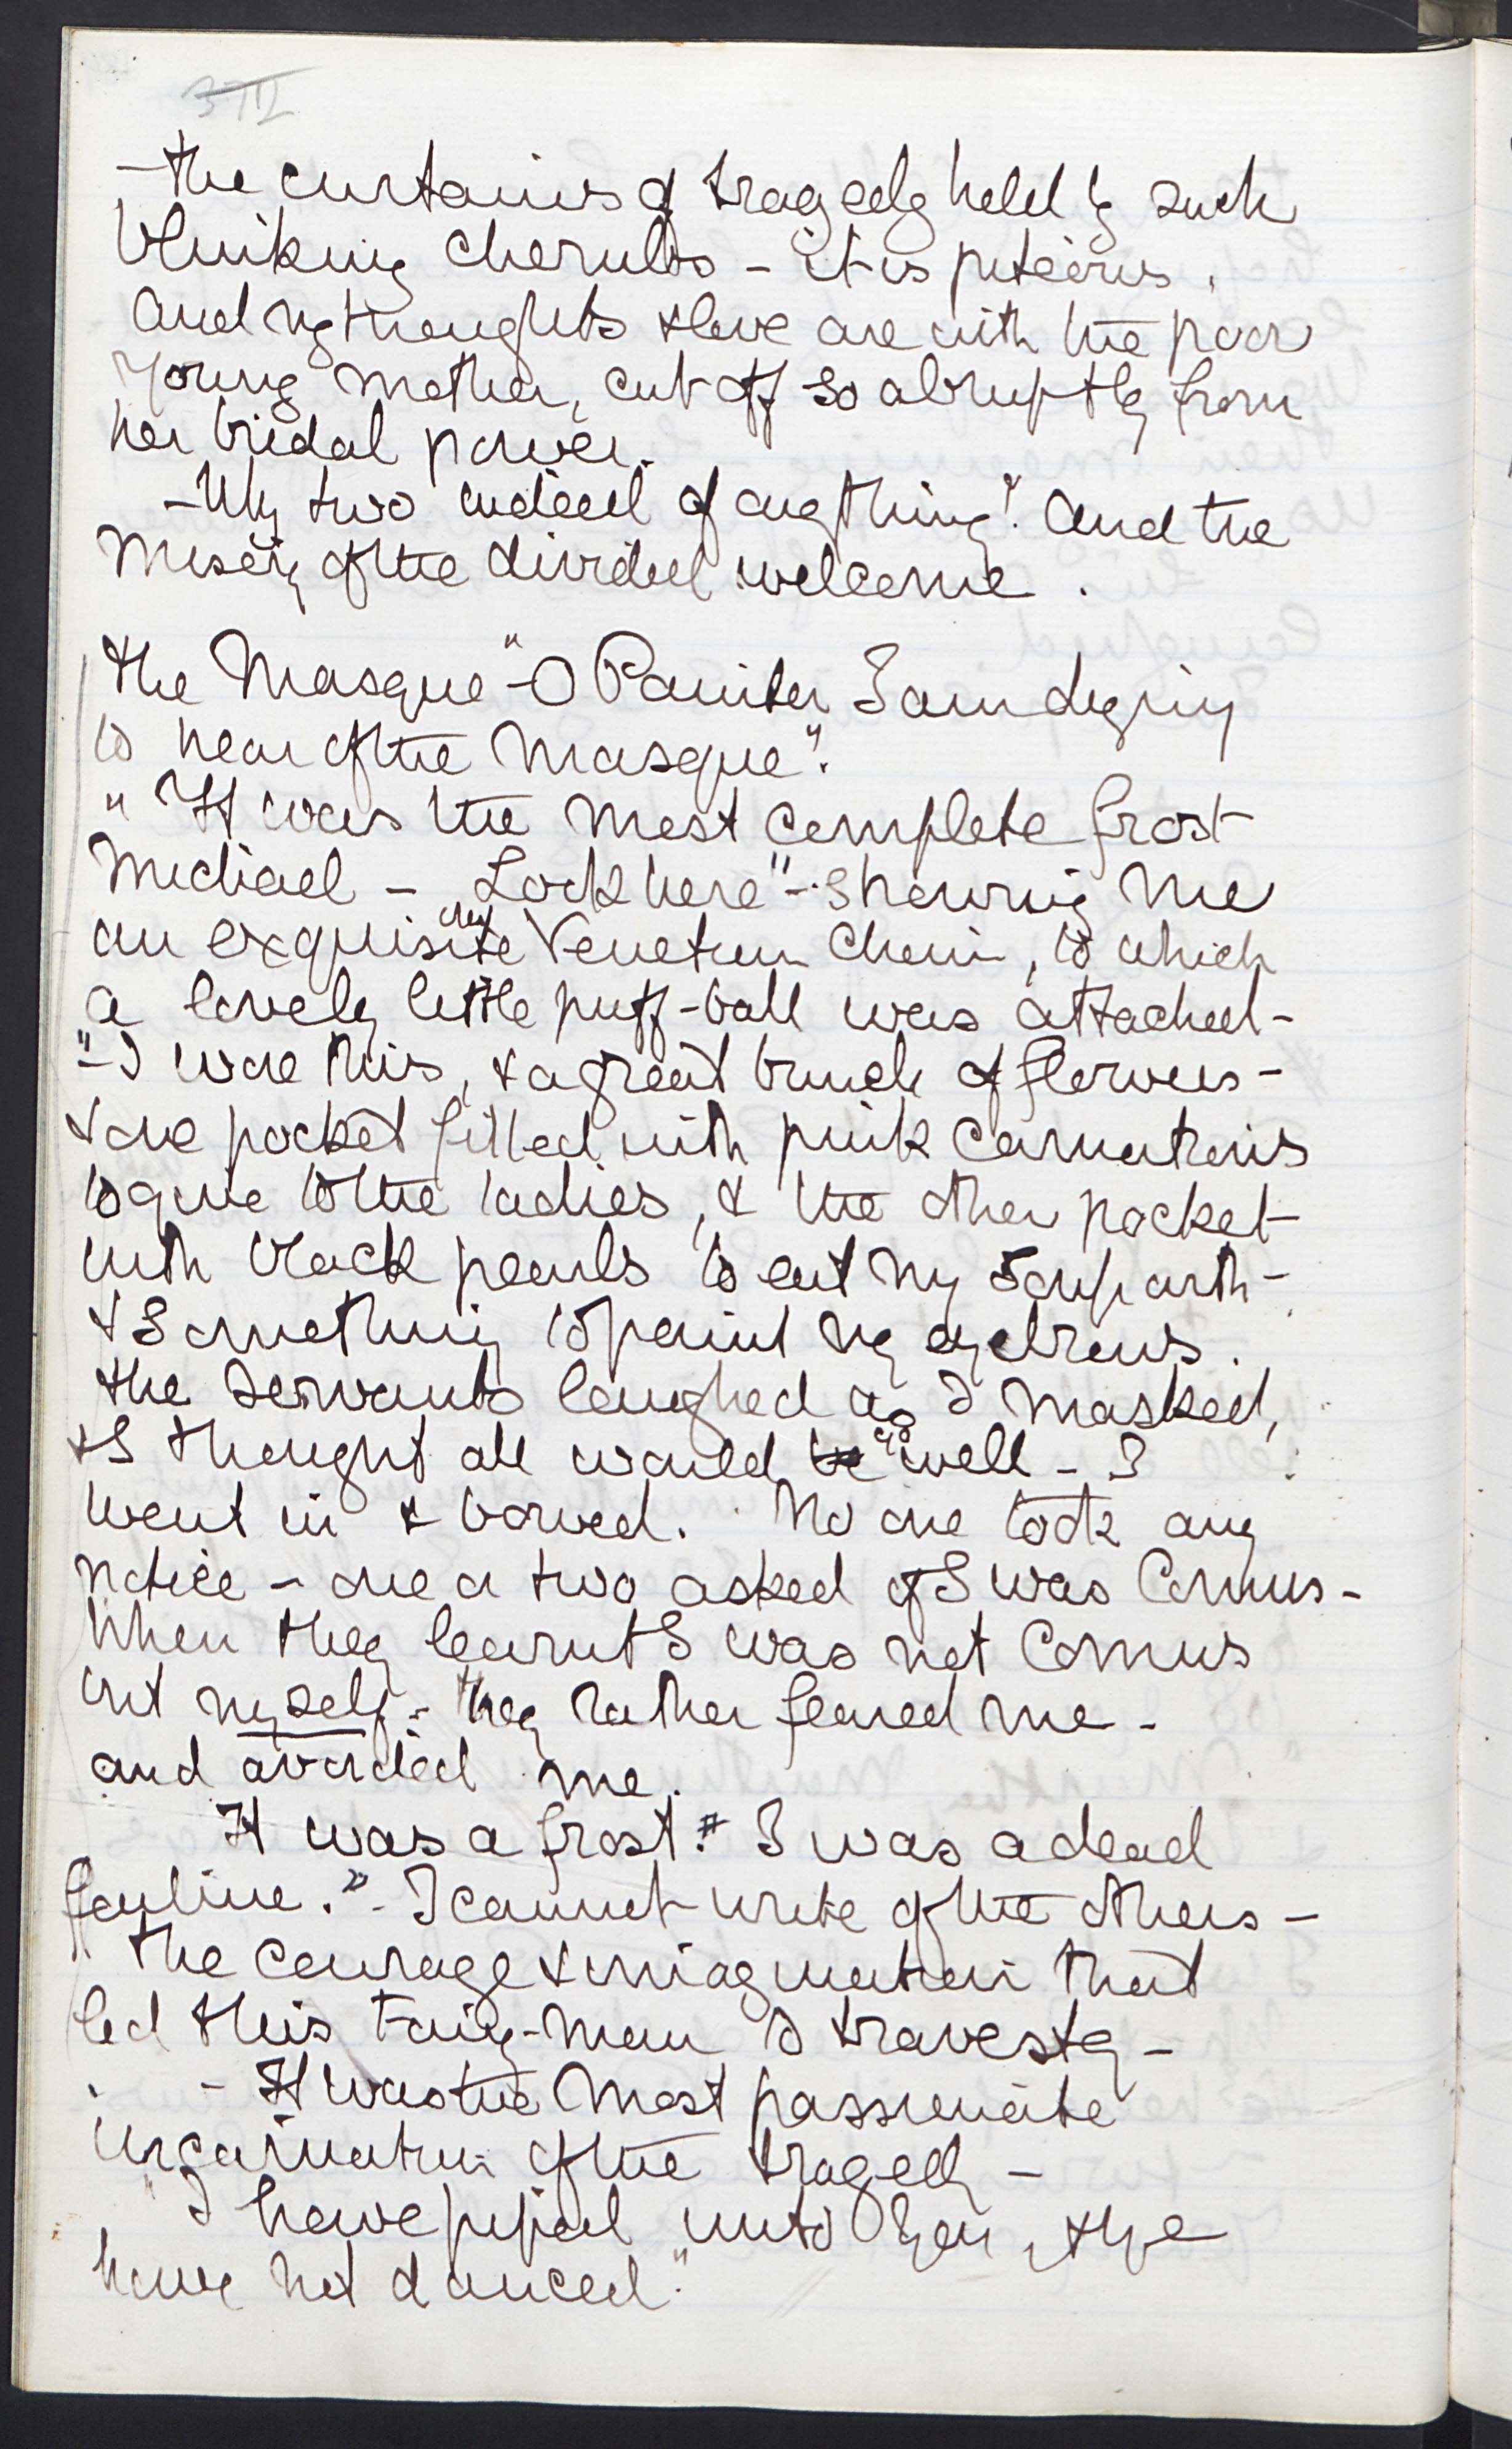 - the curtains of tragedy held by such
blinking cherubs - it is piteous,
and my thoughts & love are with the poor
young mother, cut off so abruptly from
her bridal power.
- Why two indeed of anything! And the
misery of the divided welcome.
The Masque "- O Painter I am dying
to hear of the Masque".
" It was the most complete frost
Michael - Look here" - shewing me
an exquisite Venetian chain, to which
a lovely little puff-ball was attached -
"- I wore this, & a great bunch of flowers -
& one pocket filled with pink carnations
to give to the ladies, & the other pocket
with black pearls to eat my soup with -
& something to paint my eyebrows.
The servants laughed as I masked,
& I thought all would be go well - I
went in & bowed. No one took any
notice - one or two asked if I was Comus -
When they learnt I was not Comus
but myself - they rather feared me -
and avoided me.
It was a frost. I was a dead
failure." - I cannot write of the others -
The courage & imagination that
led this Fairy-man to travesty -
- It was the most passionate
incarnation of the tragedy -
"I have piped unto you, & ye
have not danced."